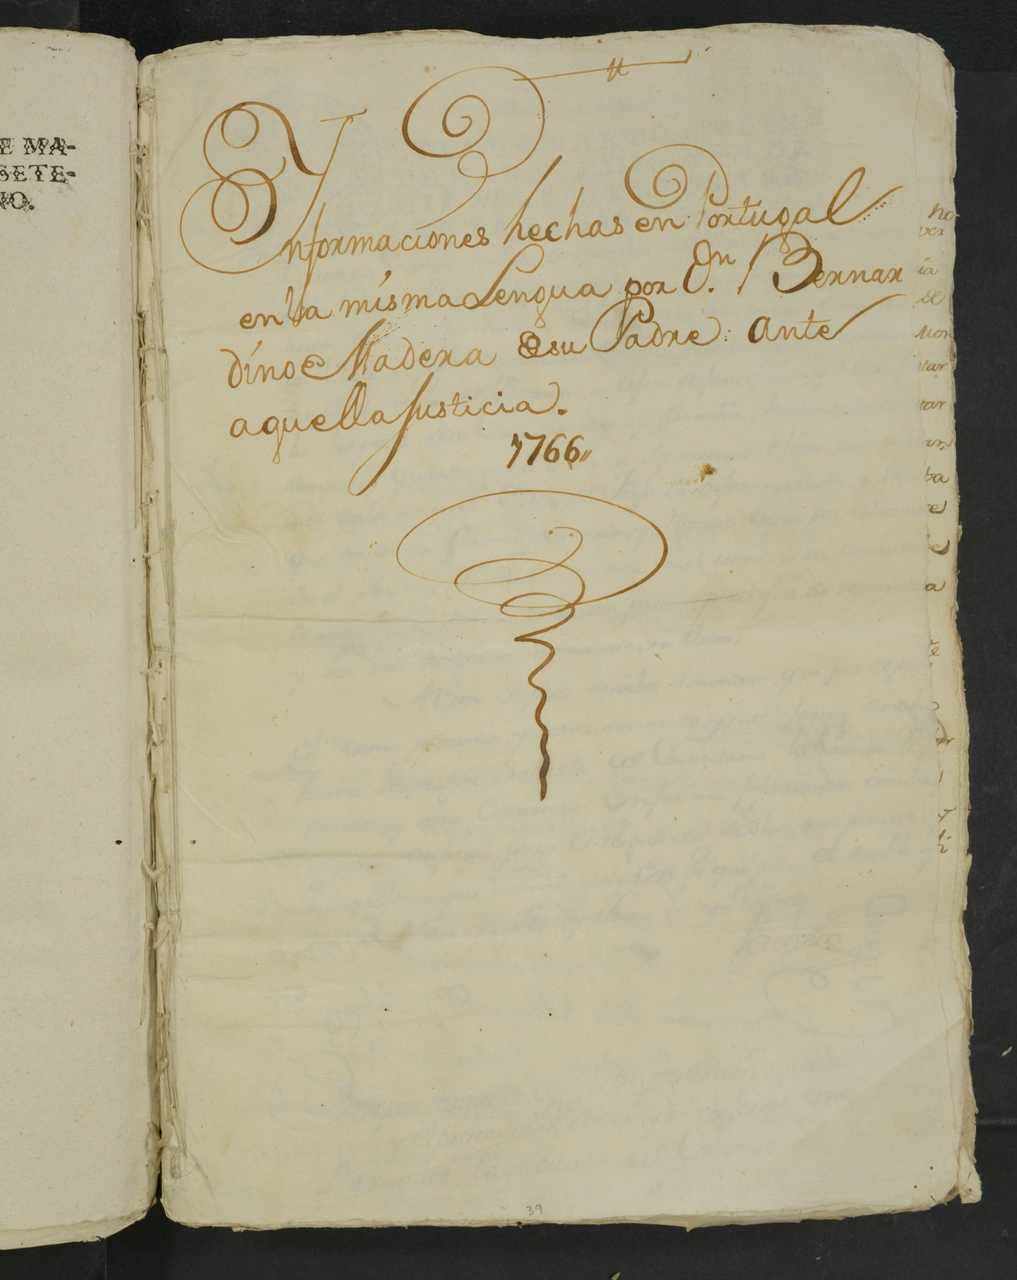 E MA-
SETE-
NO.
Ynformaciones hechas en Portugal
en la misma Lengua por Dn. Bernar
dino Madera su Padre: ante
aquella Justicia.
1766
39